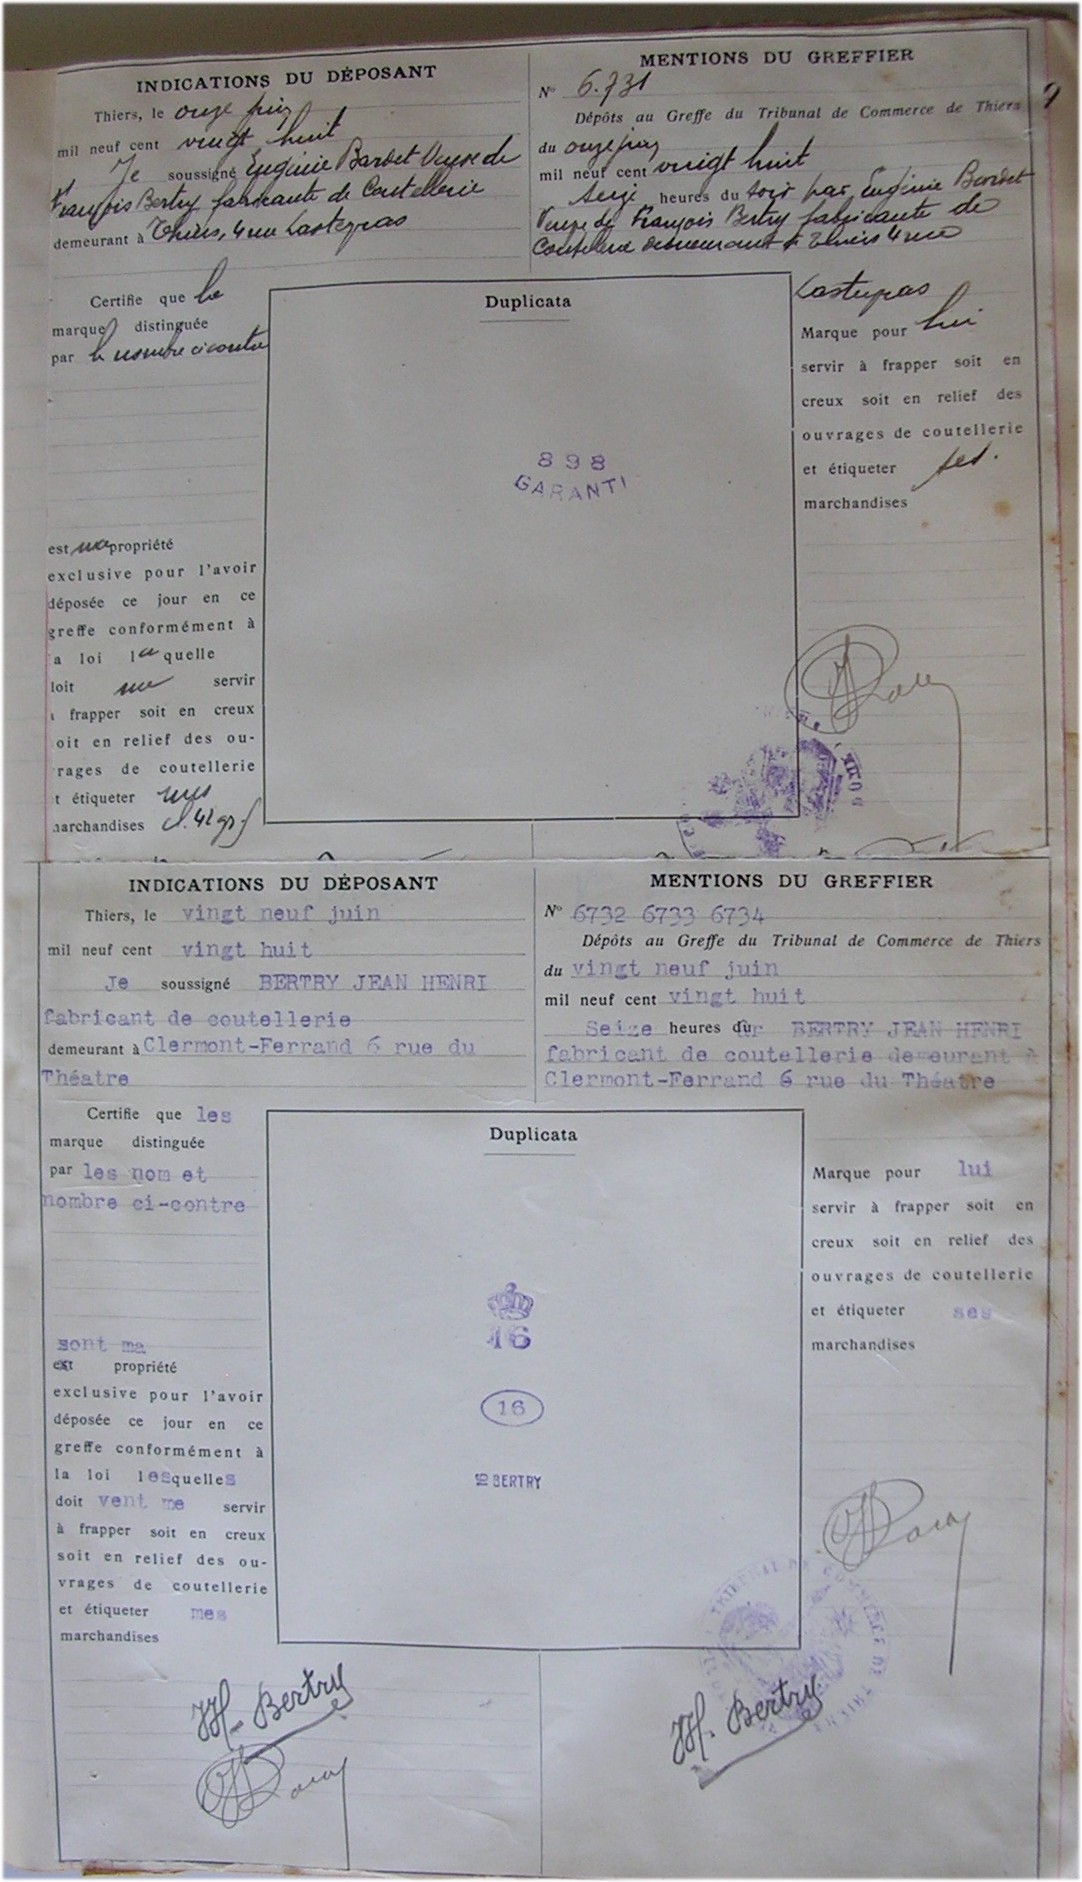 INDICATIONS DU DÉPOSANT
Thiers, le onze juin
mil neuf cent vingt huit
Je soussigné Eugénie Bardet Veuve de
François Bertry fabricante de Coutellerie
demeurant à Thiers, 4 rue Lasteyras
Certifie que le
marque distinguée
par le nombre ci contre
est ma propriété
exclusive pour l'avoir
déposée ce jour en ce
greffe conformément à
a loi laquelle
loit me servir
frapper soit en creux
oit en relief des ou-
rages de coutellerie
t étiqueter mes
archandises
Duplicata
898
GARANTI
MENTIONS DU GREFFIER
N° 6.731
Dépôts au Greffe du Tribunal de Commerce de Thiers
du onze juin
mil neuf cent vingt huit
Seize heures du soir par Eugénie Bardet
Veuve de François Bertry fabricante de
Coutellerie demeurant à Thiers 4 rue
Lasteyras
Marque pour lui
servir à frapper soit en
creux soit en relief des
ouvrages de coutellerie
et étiqueter ses.
marchandises
INDICATIONS DU DÉPOSANT
Thiers, le vingt neuf juin
mil neuf cent vingt huit
Je soussigné BERTRY JEAN HENRI
fabricant de coutellerie
demeurant à Clermont-Ferrand 6 rue du
Théatre
Certifie que les
marque distinguée
par les nom et
nombre ci-contre
sont ma
est propriété
exclusive pour l'avoir
déposée ce jour en ce
greffe conformément à
la loi lesquelles
doit vent me servir
à frapper soit en creux
soit en relief des ou-
vrages de coutellerie
et étiqueter mes
marchandises
Duplicata
16
16
16 BERTRY
MENTIONS DU GREFFIER
N° 6732 6733 6734
Dépôts au Greffe du Tribunal de Commerce de Thiers
du vingt neuf juin
mil neuf cent vingt huit
Seize heures du BERTRY JEAN HENRI
fabricant de coutellerie demeurant à
Clermont-Ferrand 6 rue du Théatre
Marque pour lui
servir à frapper soit en
creux soit en relief des
ouvrages de coutellerie
et étiqueter ses
marchandises
TRIBUNAL DE COMMERCE DE THIERS
JH. Bertry
JH. Bertry